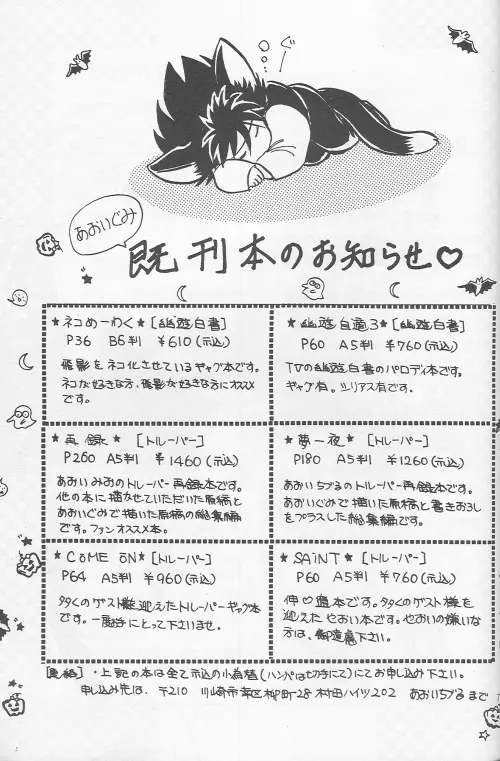 ぐー
あおいぐみ
既刊本のお知らせ♡
★ネコめーわく★[幽遊白書]
P36 B6判 ¥610(税込)
飛影をネコ化させているギャグ本です。
ネコが好きな方、飛影が好きな方にオススメ
です。
★幽遊自適3★[幽遊白書]
P60 A5判 ¥760(税込)
TVの幽遊白書のパロディ本です。
ギャグ有。シリアス有です。
★再録★[トルーパー]
P260 A5判 ¥1460(税込)
あおいみおのトルーパー再録本です。
他の本に描かせていただいた原稿と
あおいぐみで描いた原稿の総集編
です。ファンオススメ本。
★夢一夜★[トルーパー]
P180 A5判 ¥1260(税込)
あおいちづるのトルーパー再録本です。
あおいぐみで描いた原稿と書きおろし
をプラスした総集編です。
★COME ON★[トルーパー]
P64 A5判 ¥960(税込)
多々くのゲスト様迎えたトルーパーギャグ本
です。一度手にとって下さいませ。
★SAiNT★[トルーパー]
P60 A5判 ¥760(税込)
伸♡当本です。多々くのゲスト様を
迎えたやおい本です。やおいの嫌いな
方は、御遠慮下さい。
[連絡]・上記の本は全て税込の小為替(ハンパは切手にて)にてお申し込み下さい。
申し込み先は、〒210 川崎市幸区柳町28 村田ハイツ202 あおいちづる まで